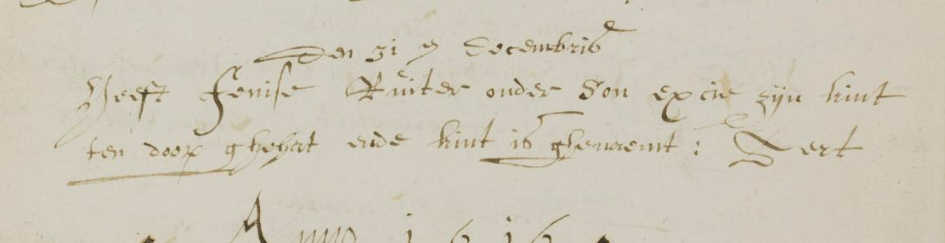 Den 31 Decembris
Heeft een Ruiter onder Son Excie zijn kint
ten doop ghehat ende kint is ghenaemt: Gert
Anno 1616